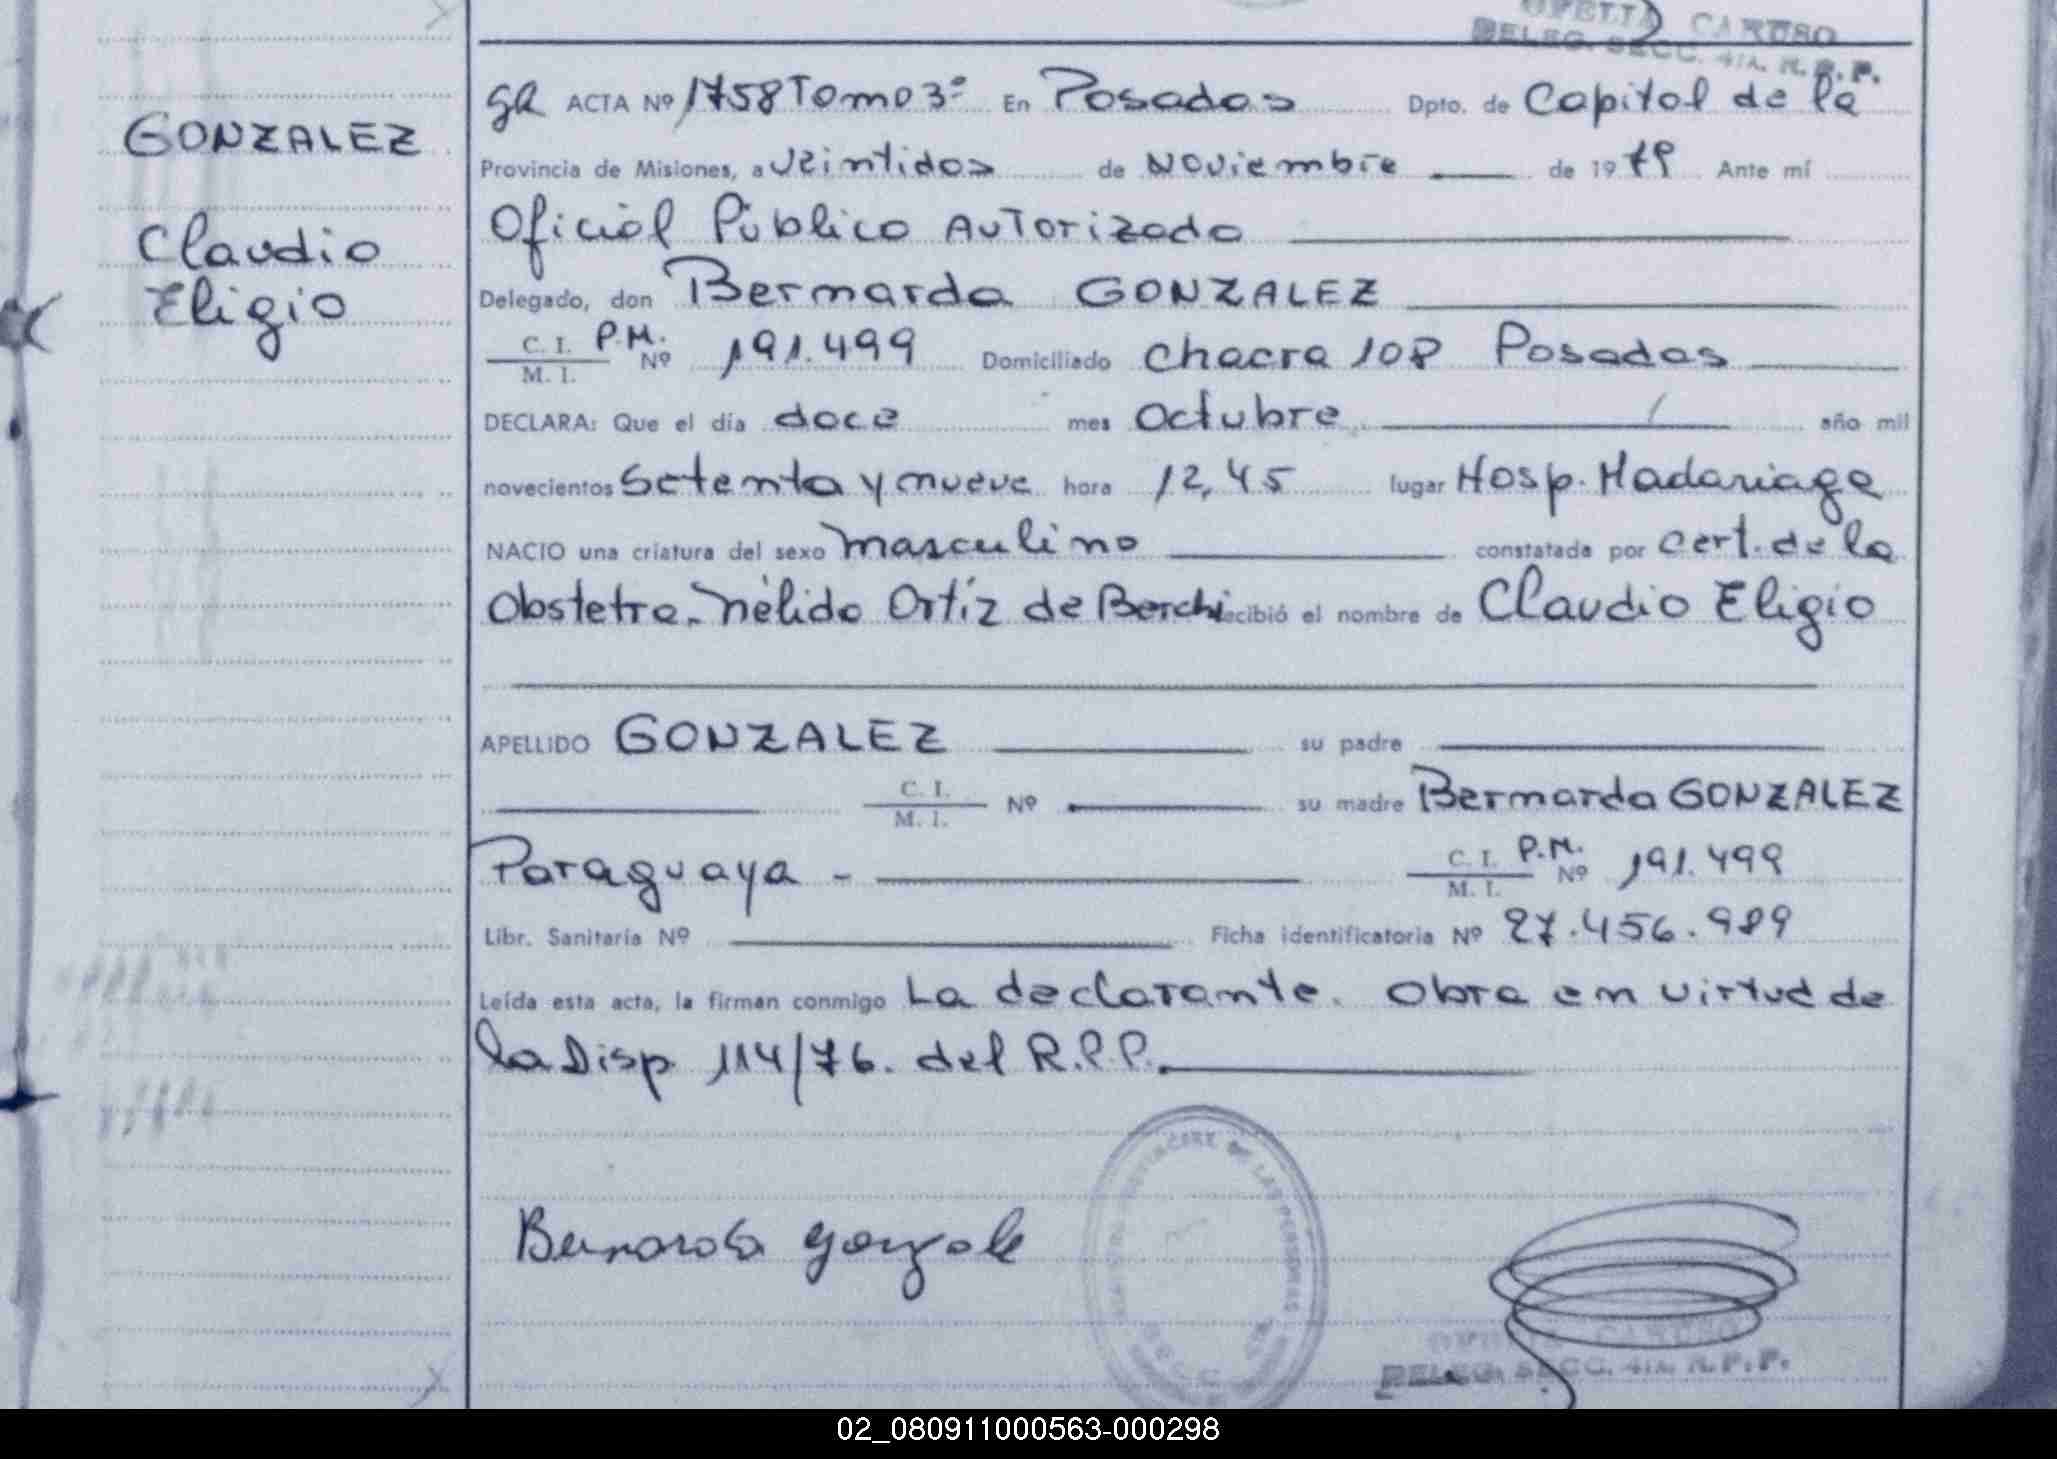 CARUSO
DELEG. SECC. 4ta. R.P.P.
GONZALEZ
Claudio
Eligio
ACTA Nº 1758 Tomo 3º En Posadas Dpto. de Capital de la
Provincia de Misiones, a veintidos de Noviembre de 1979 Ante mí
Oficial Público Autorizado
Delegado, don Bernarda GONZALEZ
C. I. P.M.
M. I. Nº 191.499 Domiciliado Chacra 108 Posadas
DECLARA: Que el día doce mes Octubre año mil
novecientos Setenta y nueve hora 12,45 lugar Hosp. Madariaga
NACIO una criatura del sexo masculino constatada por cert. de la
Obstetra. Nélida Ortíz de recibió el nombre de Claudio Eligio
APELLIDO GONZALEZ su padre
C. I.
M. I. Nº su madre Bernarda GONZALEZ
Paraguaya - C. I. P.M.
M. I. Nº 191.499
Libr. Sanitaria Nº Ficha identificatoria Nº 27.456.989
Leída esta acta, la firman conmigo La declarante. Obra en virtud de
la Disp. 114/76. del R.P.P.
Bernarda Gonzale
CARUSO
DELEG. SECC. 4ta. R.P.P.
02_080911000563-000298